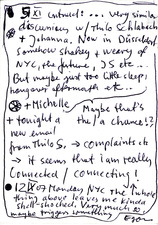 5 XI outwalk: ... very similar
discussion w/ Thilo Schlabach
+ Johanna, Now in Düsseldorf
Somehow shakey + weary of
NYC, the future, JS etc...
But maybe just too little sleep;
hangover aftermath etc...
+ Michelle Maybe that's
+ tonight a the/a chance!?
new email
from Thilo S, → complaints etc
→ it seems that i am really
Connected / connecting!
12 IX 07 Monday NYC The whole
thing above leaves me kinda
shell-shocked. Very much so.
maybe trigger something